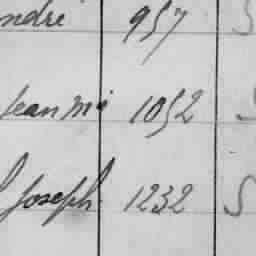 ndré 957 S
Jean Mi 1052 S
Joseph 1232 S